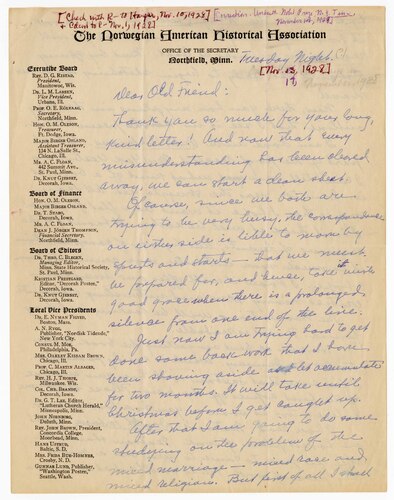 [Check with R-
+ Count to R-Nov, 1928]
The Norwegian American Historical Association
OFFICE OF THE SECRETARY
Northfield, Minn.
Tuesday Night.
[Nov. 13, 1928]
Executive Board
Rev. D. G. Ristad,
President,
Manitowoc, Wis.
Dr. L. M. Larsen,
Vice President,
Urbana, Ill.
Prof. O. E. Rölvaag,
Secretary,
Northfield, Minn.
Hon. O. M. Oleson,
Treasurer,
Ft. Dodge, Iowa.
Major Birger Osland,
Assistant Treasurer,
134 N. LaSalle St.,
Chicago, Ill.
Mr. A. C. Floan,
442 Summit Ave.,
St. Paul, Minn.
Dr. Knut Gjerset,
Decorah, Iowa.
Board of Finance
Hon. O. M. Oleson,
Major Birger Osland,
Dr. T. Stabo,
Decorah, Iowa.
Mr. A. C. Floan,
Dean J. Jorgen Thompson,
Financial Secretary,
Northfield, Minn.
Board of Editors
Dr. Theo. C. Blegen,
Managing Editor,
Minn. State Historical Society,
St. Paul, Minn.
Kristian Prestgard,
Editor, "Decorah Posten,"
Decorah, Iowa.
Dr. Knut Gjerset,
Decorah, Iowa.
Local Vice Presidents
Dr. E. Nyman Figved,
Boston, Mass.
A. N. Rygg,
Publisher, "Nordisk Tidende,"
New York City.
Consul M. Moe,
Philadelphia, Pa.
Mrs. Oakley Kissam Brown,
Chicago, Ill.
Prof. C. Martin Alsager,
Chicago, Ill.
Rev. H. J. Thorpe,
Milwaukee, Wis.
Col. Chr. Brandt,
Decorah, Iowa.
Dr. G. T. Lee, Editor,
"Lutheran Church Herald,"
Minneapolis, Minn.
John Norberg,
Duluth, Minn.
Rev. John Brown, President,
Concordia College,
Moorhead, Minn.
Hans Ustrud,
Baltic, S. D.
Mrs. Frida Bue-Homnes,
Crosby, N. D.
Gunnar Lund, Publisher,
"Washington Posten,"
Seattle, Wash.
Dear Old Friend:
Thank you so much for your long,
kind letter! And now that every
misunderstanding has been cleared
away, we can start a clean sheet.
Of course, since we both are
trying to be very busy, the correspondence
on either side is liable to move by
spurts and starts — that we must
be prepared for, and hence, take it with
good grace when there is a prolonged
silence from one end of the line.
Just now I am trying hard to get
done some back work that I have
been shoving aside + let accumulate
for two months. It will take until
Christmas before I get caught up.
After that I am going to do some
studying on the problem of the
mixed marriage — mixed race and
mixed religion. But first of all I shall